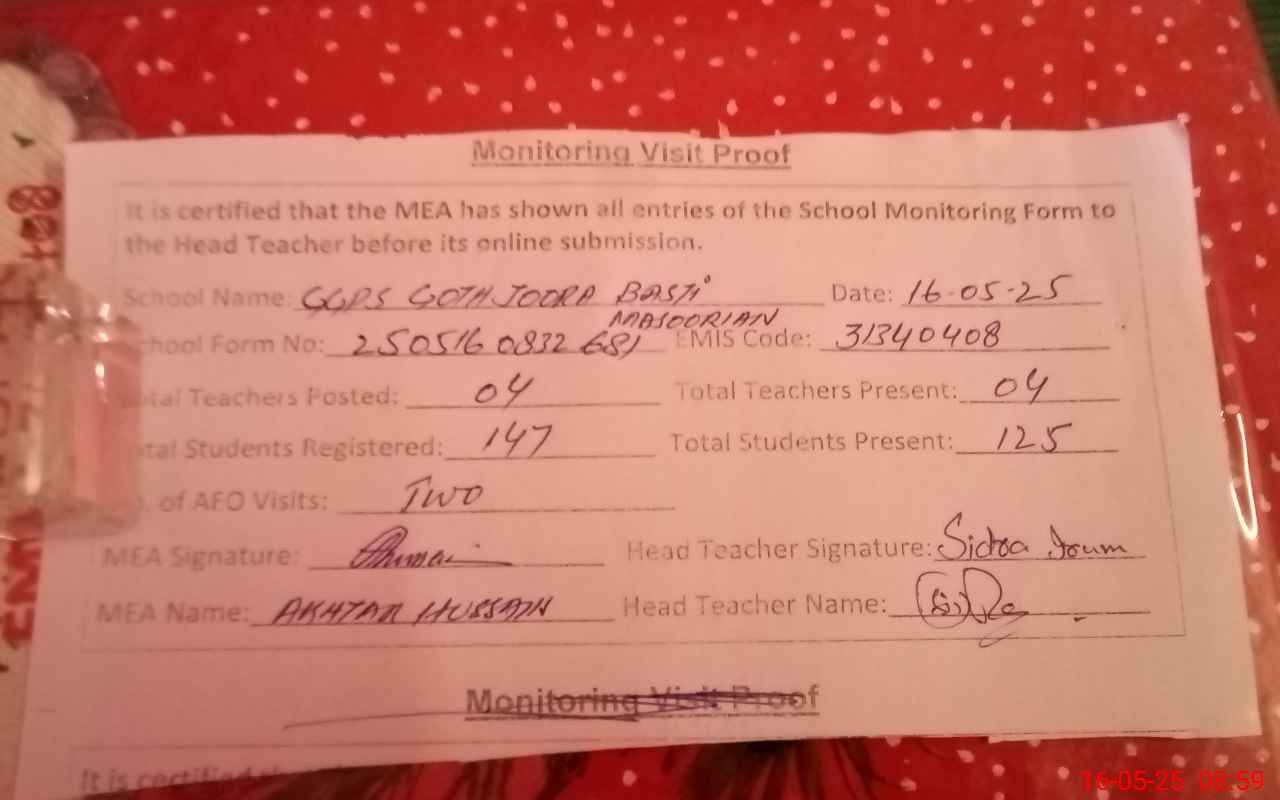 Monitoring Visit Proof
It is certified that the MEA has shown all entries of the School Monitoring Form to
the Head Teacher before its online submission.
School Name: GGPS GOTH JOORA BASTI Date: 16-05-25
MASOORIAN
hool Form No: 250516 0832 681 EMIS Code: 31340408
tal Teachers Posted: 04 Total Teachers Present: 04
tal Students Registered: 147 Total Students Present: 125
. of AEO Visits: TWO
MEA Signature: Head Teacher Signature: Sidra Irum
MEA Name: AKHTAR HUSSAIN Head Teacher Name:
Monitoring Visit Proof
It is certified
16-05-25 08:59